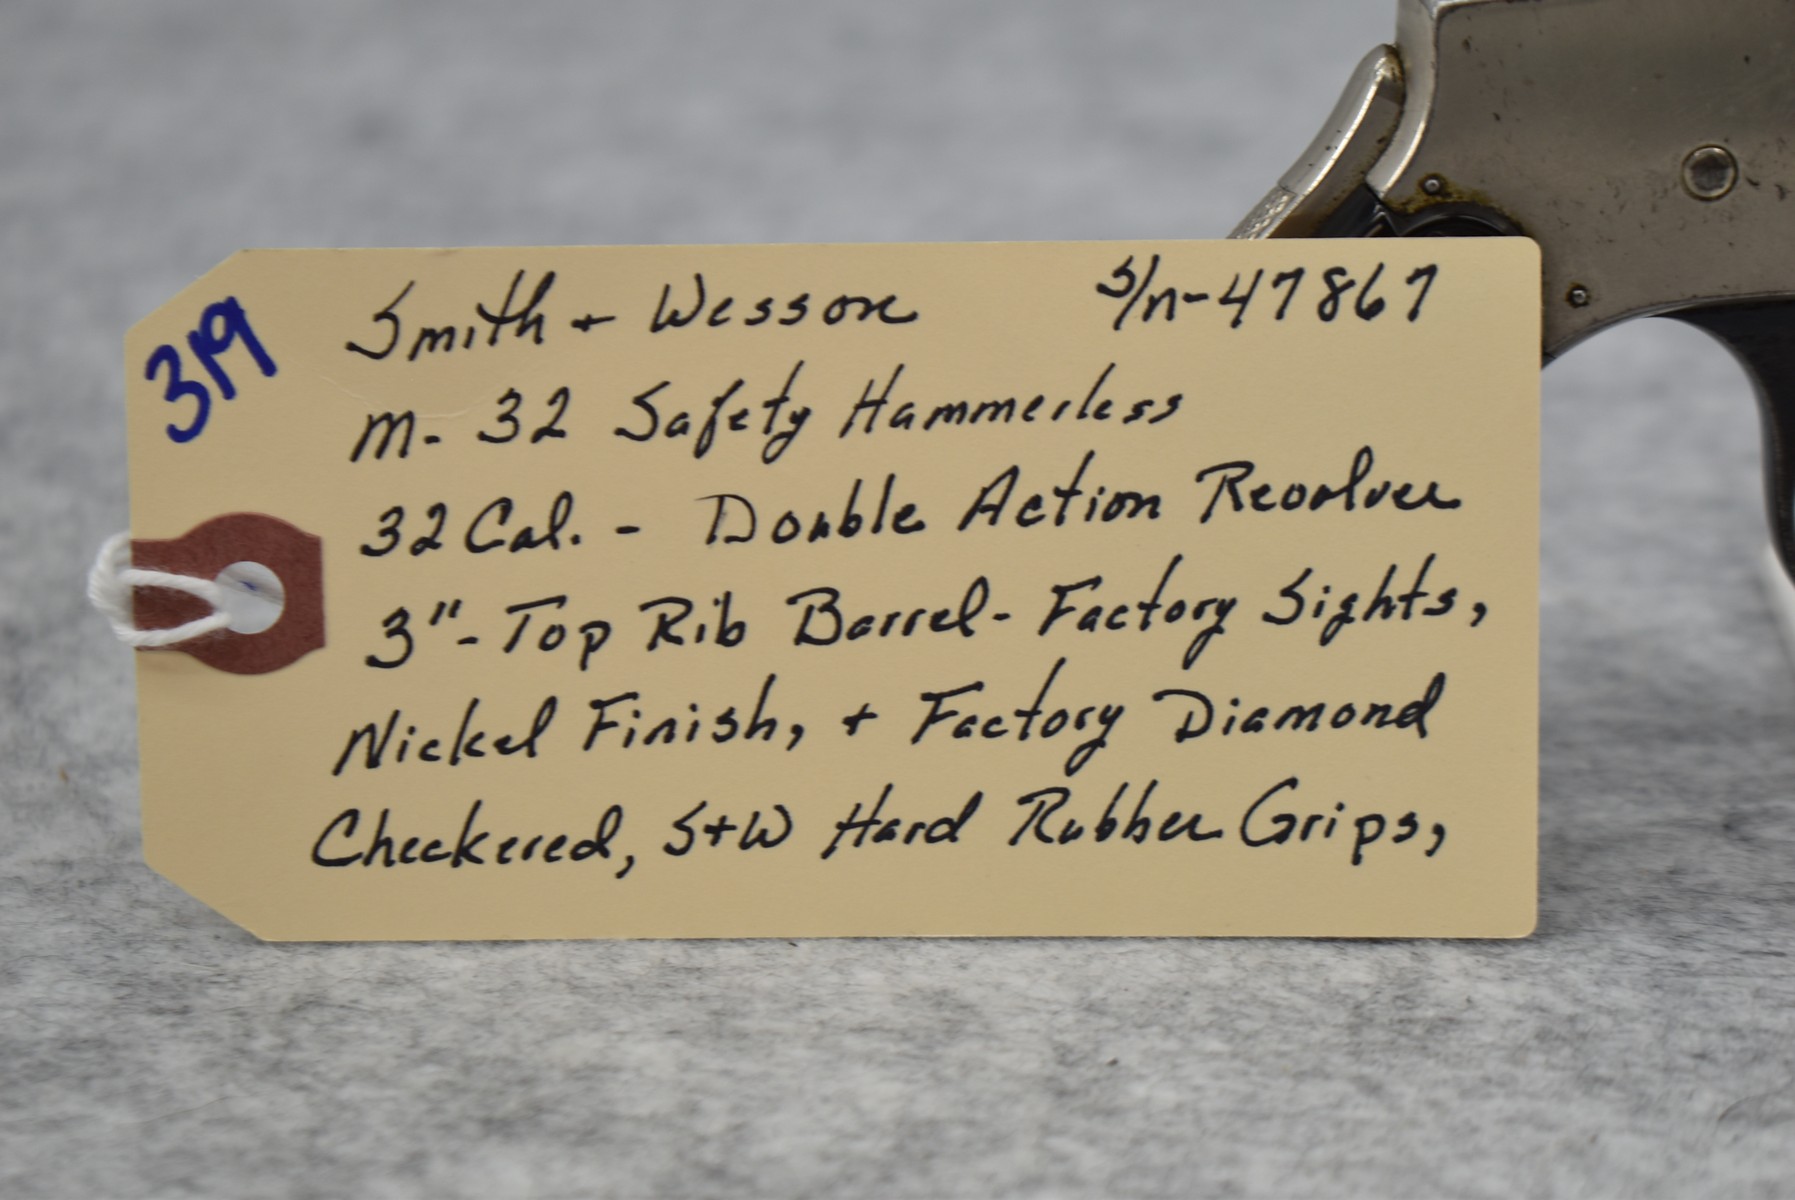 319
Smith + Wesson S/n-47867
M- 32 Safety Hammerless
32 Cal. - Double Action Revolver
3"- Top Rib Barrel- Factory Sights,
Nickel Finish, + Factory Diamond
Checkered, S+W Hard Rubber Grips,